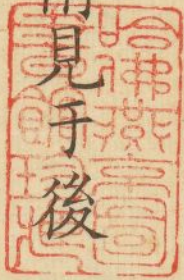 見手後
哈佛燕京圖
書館珍